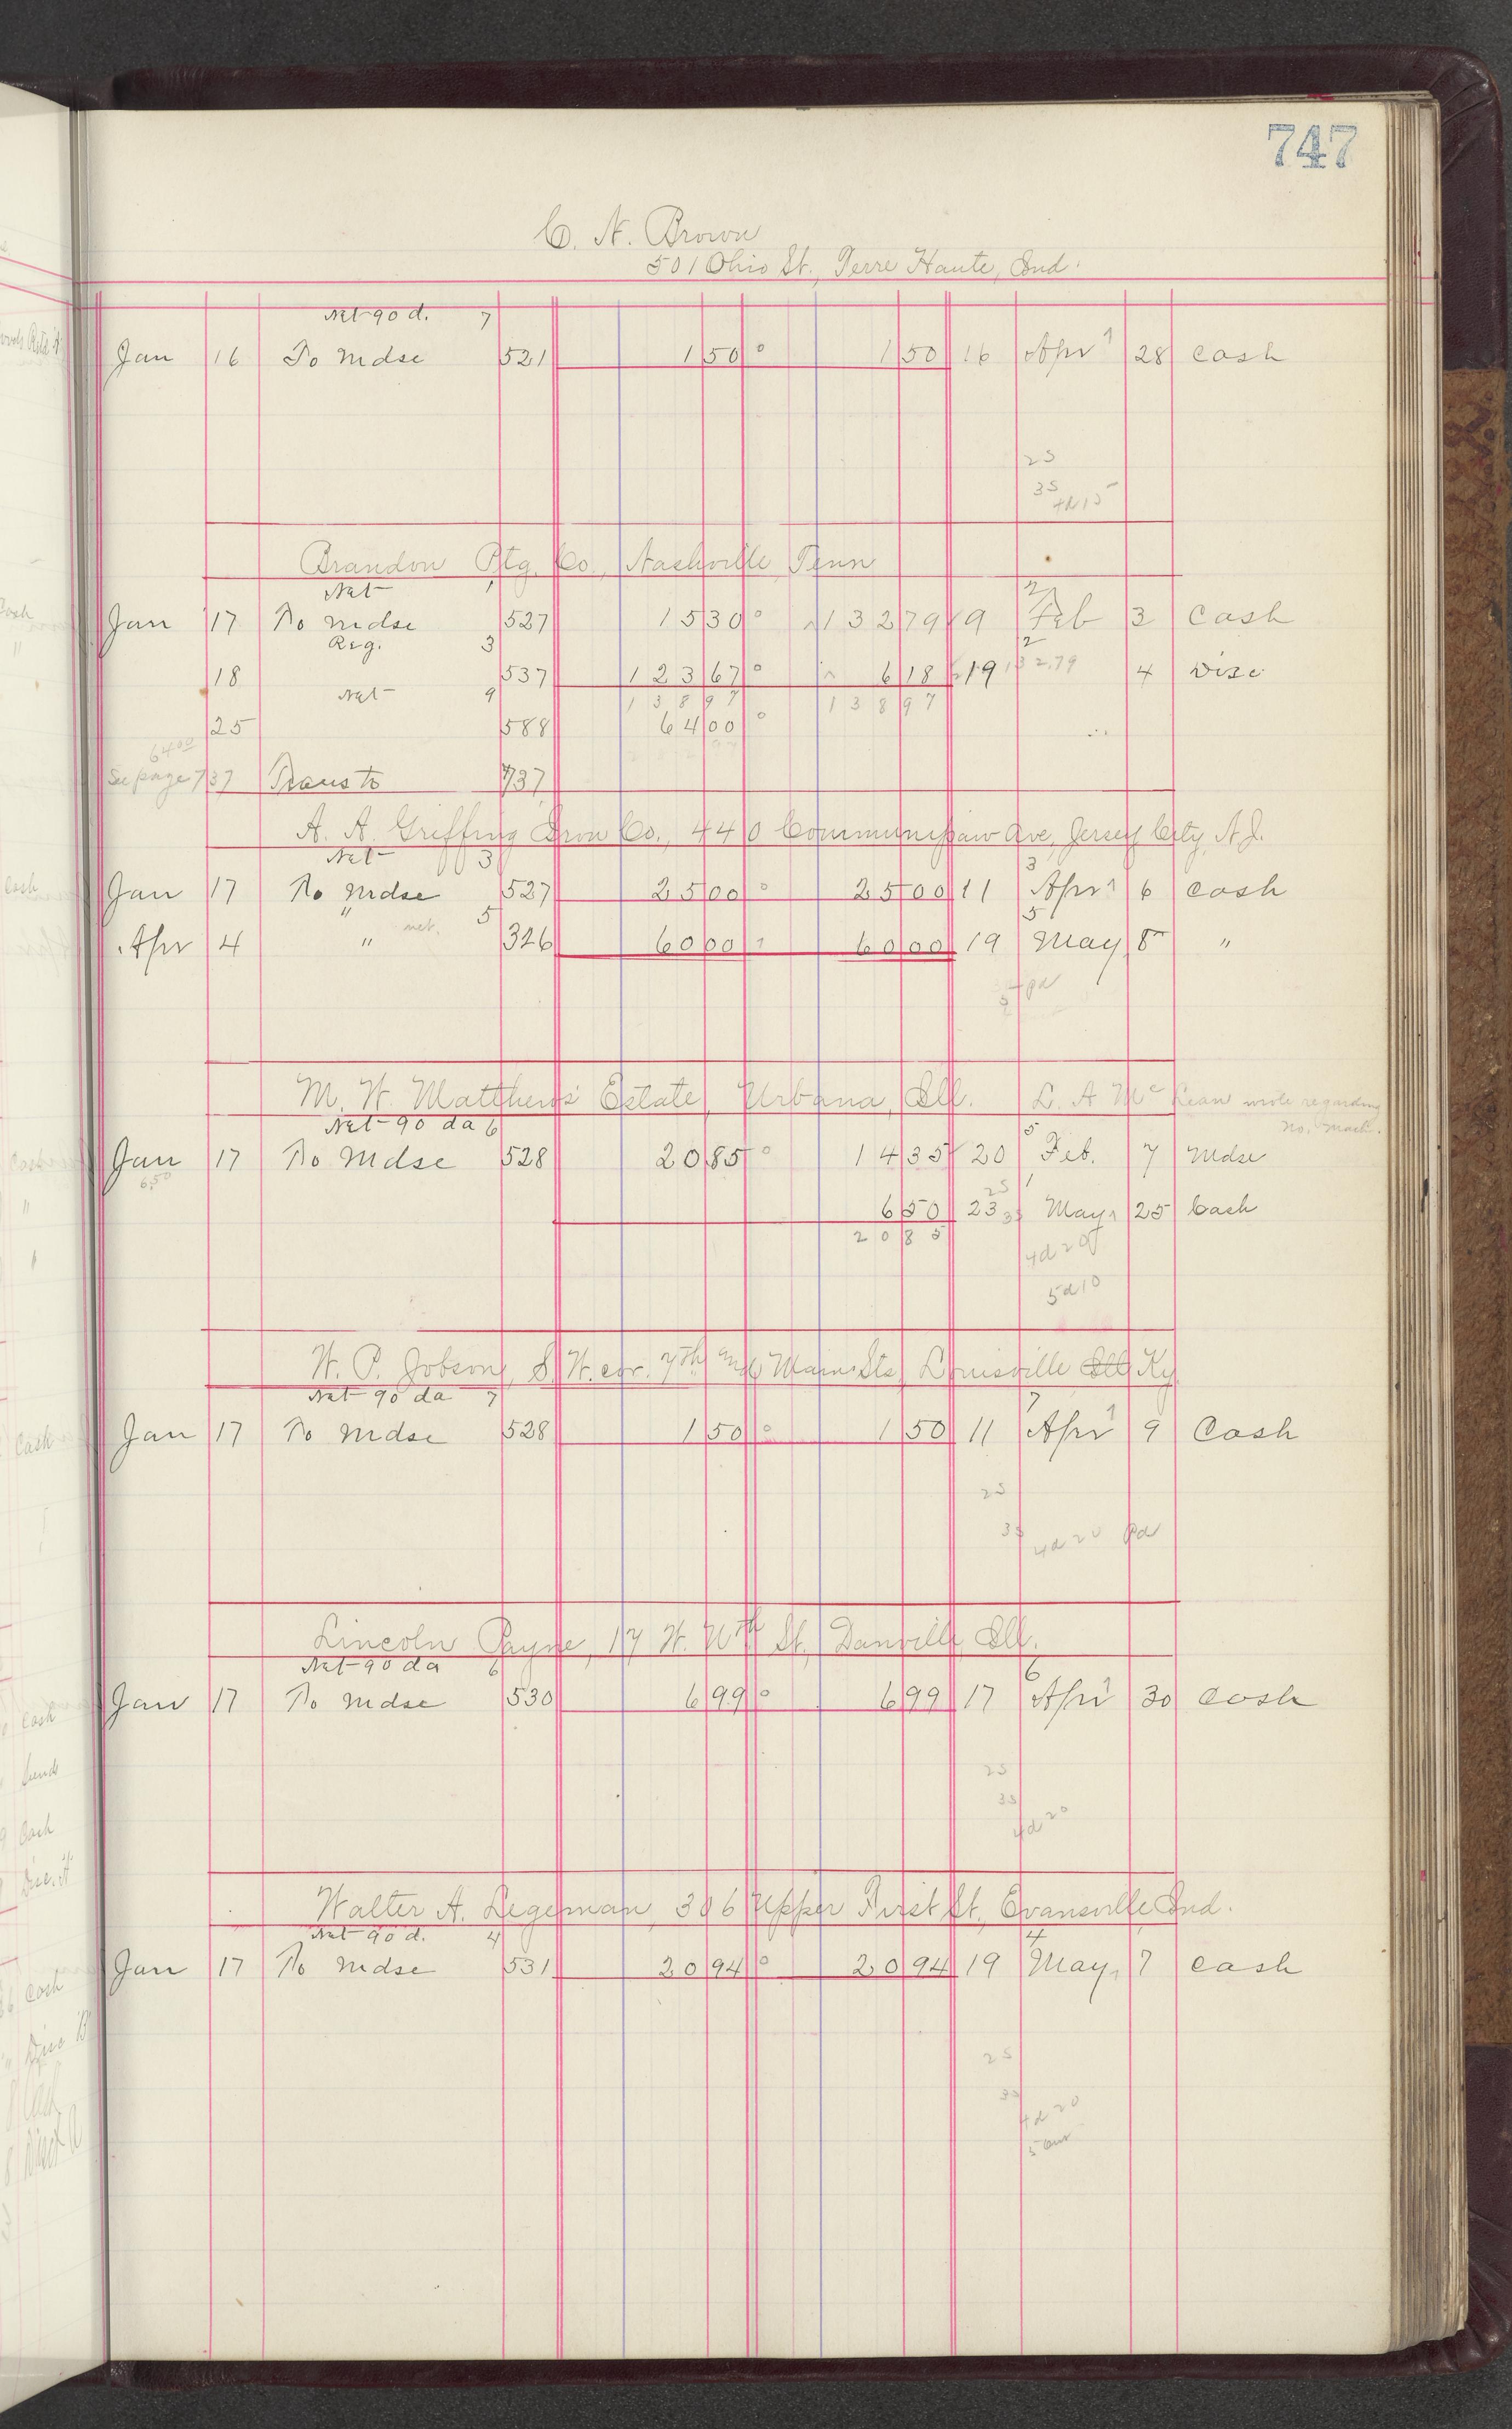 747
C. N. Brown
501 Ohio St., Terre Haute, Ind.
Net 90 d. 7
Jan 16 To Mdse 521 1 50 1 50 16 Apr 28 Cash
2s
3s
4d15
Brandon Ptg. Co., Nashville Tenn
Net 1 2
Jan 17 To Mdse 527 15 30 132 79 9 Feb 3 Cash
Reg. 3 2
18 537 123 67 6 18 19 132.79 4 Disc
Net 9 138 97 138 97
25 588 64 00
64 00
See page 737 Trans to 737
A. A. Griffing Iron Co., 440 Communipaw Ave, Jersey City, N.J.
Net 3 3
Jan 17 To Mdse 527 25 00 25 00 11 Apr 6 Cash
" net. 5 5
Apr 4 " 326 60 00 60 00 19 May 8 "
pd
M. W. Matthews' Estate, Urbana, Ill. L. A. McLean wrote regarding
no. mach.
Net 90 da 6 5
Jan 17 To Mdse 528 20 85 14 35 20 Feb. 7 Mdse
6.50 2s
6 50 23 3s May 25 Cash
20 85
4d20
5d10
W. P. Jobson, S. W. cor. 7th and Main Sts, Louisville Ill Ky
Net 90 da 7 7
Jan 17 To Mdse 528 1 50 1 50 11 Apr 9 Cash
2s
3s 4d20 Pd
Lincoln Payne, 17 W. Nth St., Danville, Ill.
Net 90 da 6 6
Jan 17 To Mdse 530 6 99 6 99 17 Apr 30 Cash
2s
3s
4d20
Walter A. Legeman, 306 Upper First St., Evansville Ind.
Net 90 d. 4 4
Jan 17 To Mdse 531 20 94 20 94 19 May 7 Cash
2s
3s
4d20